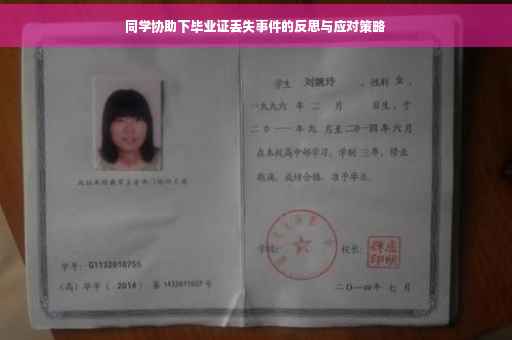 同学协助下毕业证丢失事件的反思与应对策略
学生 刘婉玲 ，性别 女 ，
一九九六 年 二 月 日生，于
二〇一一年九 月至二〇一四年六月
在本校高中部学习，学制 三年，修业
期满，成绩合格，准予毕业。
学号：G1132010755
（高）毕字（ 2014 ）第 1432011027 号
学校：
校长：
二〇一四年 七 月